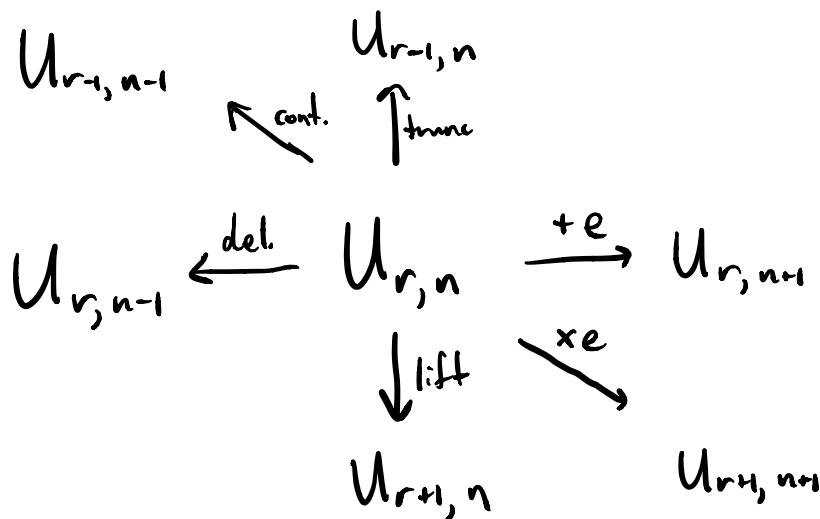 U_{r-1, n-1}
U_{r-1, n}
cont.
trunc
del.
U_{r, n-1}
U_{r, n}
+e
U_{r, n+1}
×e
lift
U_{r+1, n}
U_{r+1, n+1}